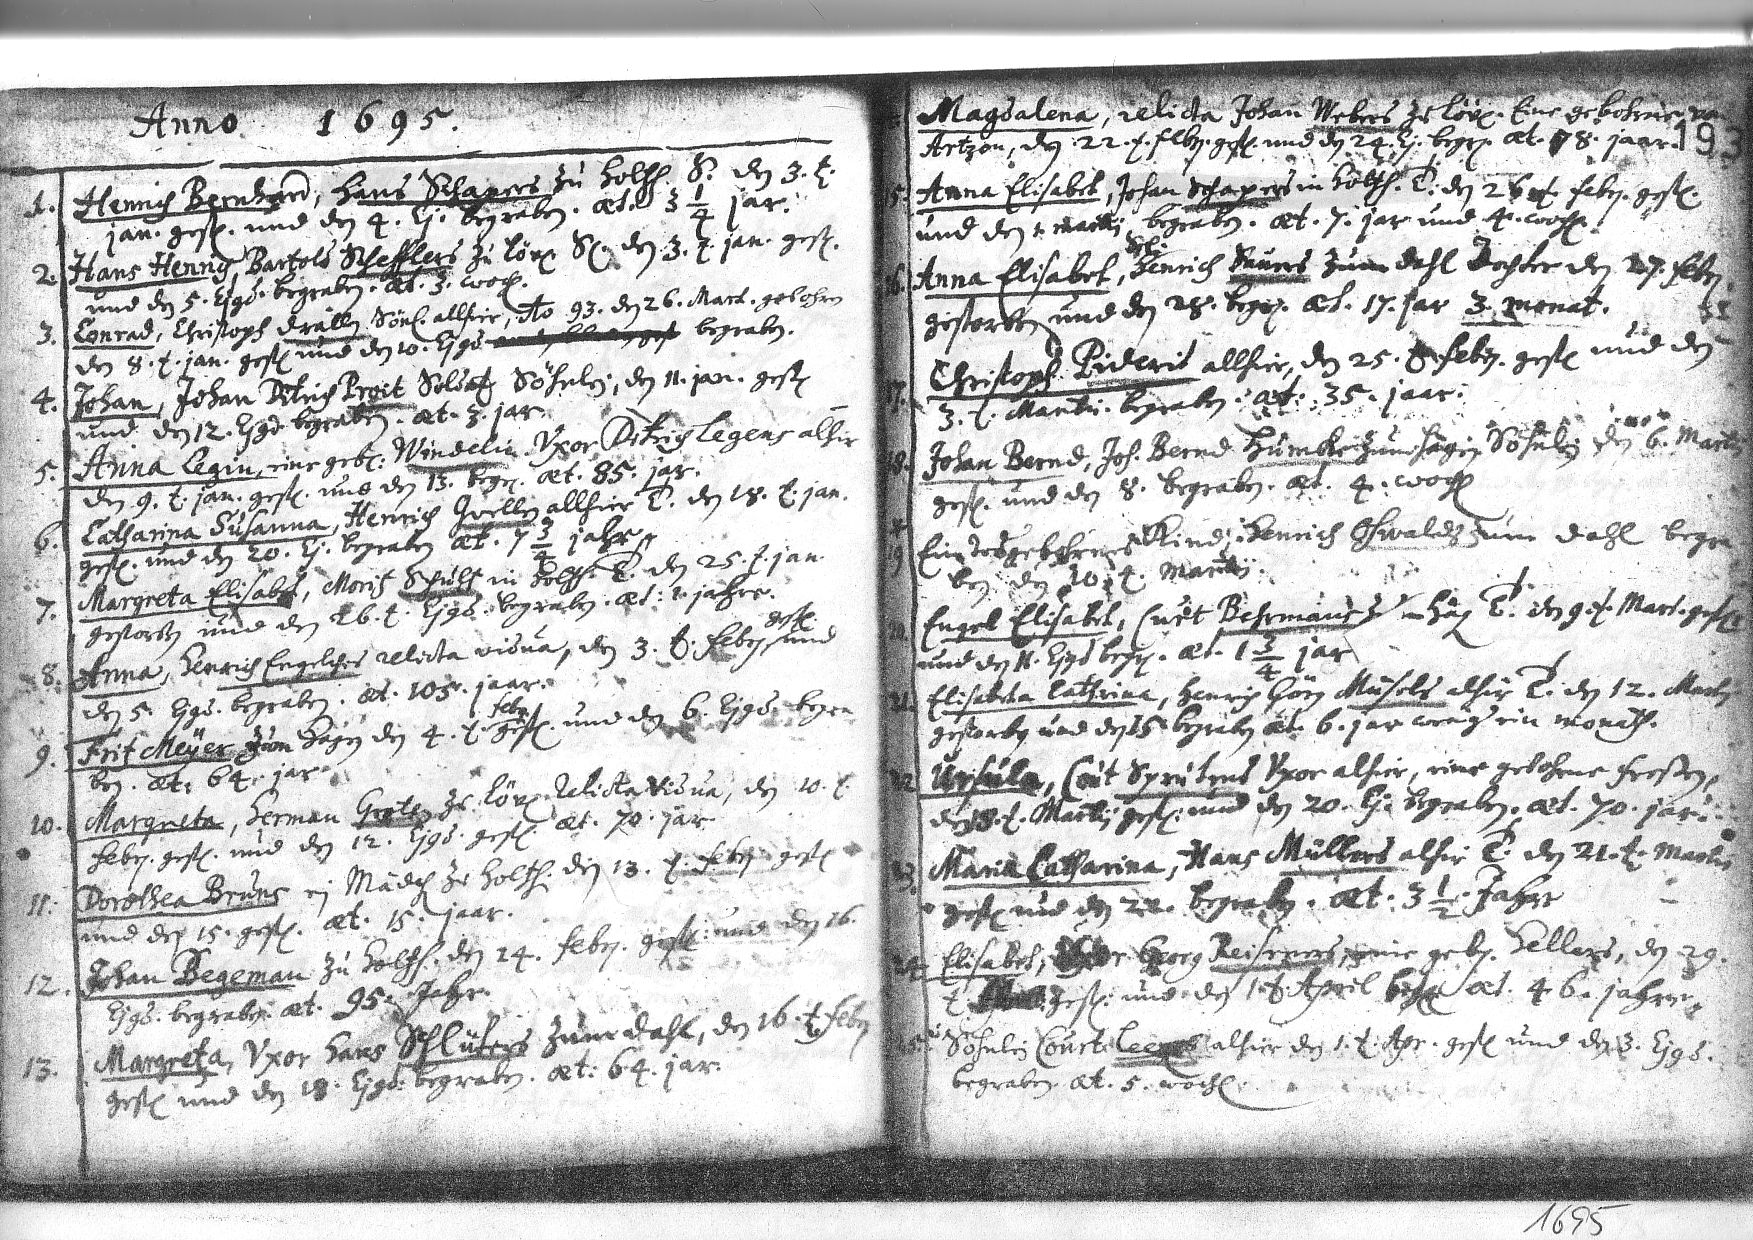 Anno 1695.
1. Henrich Bernhard, Hans Schapers zu Holtzh. S. den 3. t.
jan. gest. und den 4. Ej. begraben. æt. 3 1/4 jar.
2. Hans Henrig, Bartold Schefflers zu löv. S. den 3. t. jan. gest.
und den 5. Ejgd. begraben. æt. 3. woch.
3. Conrad, Christoph Söhnl. allhier, Ao 93. den 26. Mart. gebohren
den 8. t. jan. gest. und den 10. Ejgd begraben.
4. Johan, Johan Ditrich Söhnlein, den 11. jan. gest.
und den 12. Ejgd. begraben. æt. 3. jar.
5. Anna Legin, eine geb. Windelin. Vxor Ditrich Legens alhir
den 9. t. jan. gest. und den 13. begr. æt. 85. jar.
6. Catharina Susanna, Henrich allhier T. den 18. t. jan.
gest. und den 20. Ej. begraben æt. 7 3/4 jahr
7. Margreta Elisabet, Moritz Schult in Holtzh. T. den 25. t. jan.
gestorben und den 26. t. Ejgd. begraben. æt. 1. jahr.
8. Anna, Henrich Engelches relicta vidua, den 3. t. febr. gest. und
den 5. Ejgd. begraben. æt. 105. jaar.
9. Frit Meÿer zum Hagen den 4. t. febr. gest. und den 6. Ejgd. begra
ben. æt: 64. jar.
10. Margreta, Herman Groten zu löv. relicta vidua, den 10. t.
febr. gest. und den 12. Ejgd. gest. æt. 70. jar.
11. Dorothea Bruns ein Mädch zu Holtzh. den 13. t. febr. gest.
und den 15. gest. æt. 15. jaar.
12. Johan Begeman zu Holtzh. den 24. febr. gest. und den 26.
Ejgd. begraben. æt. 95. Jahr.
13. Margreta, Vxor Hans Schlüters zum dahl, den 16. t. febr.
gest. und den 18. Ejgd. begraben. æt. 64. jar.
Magdalena, relicta Johan Webers zu löv. Eine gebohrne von
Artzen, den 22. t. febr. gest. und den 24. Ej. begr. æt. 78. jaar. 193
5. Anna Elisabet, Johan Schapers in Holtzh. T. den 26. t. febr. gest.
und den 1. martij begraben. æt. 7. jar und 4. woch.
Sehl.
16. Anna Elisabet, Henrich Saurs zum dahl Dochter den 27. febr.
gestorben und den 28. begr. æt. 17. jar 3. monat.
17. Christoph Piderit allhier, den 25. t. febr. gest. und den
3. t. Martii. begraben. æt. 35. jaar.
18. Johan Bernd, Joh. Bernd Humke zum Hagen Söhnlein den 6. Martij
gest. und den 8. begraben. æt. 4. woch.
19 Ein todgebohrnes Kind, Henrich zum dahl begra
ben den 10. t. Martij.
20. Engel Elisabet, Curt Behrmans z. Hag. T. den 9. t. Mart. gest.
und den 11. Ejgd begr. æt. 1 3/4 jar
21. Elisabeta Cathrina, Henrich Görg alhir T. den 12. Martij
gestorben und den 15 begraben æt. 6. jar wenig ein monath.
22 Ursula, Curt Sprutens Vxor alhier, eine gebohrne
den 18. t. Martij gest. und den 20. Ej. begraben. æt. 70. jar.
23. Maria Catharina, Hans Müllers alhir T. den 21. t. Martij
gest. und den 22. begraben. æt. 3 1/2. Jahr
24. Elisabet, Georg eine geb. Hellers, den 29.
t. gest. und den 1. t. April begr. æt. 46. jahre.
25. Söhnlein Court alhier den 1. t. Apr. gest. und den 3. Ejgd.
begraben æt. 5. woch.
1695